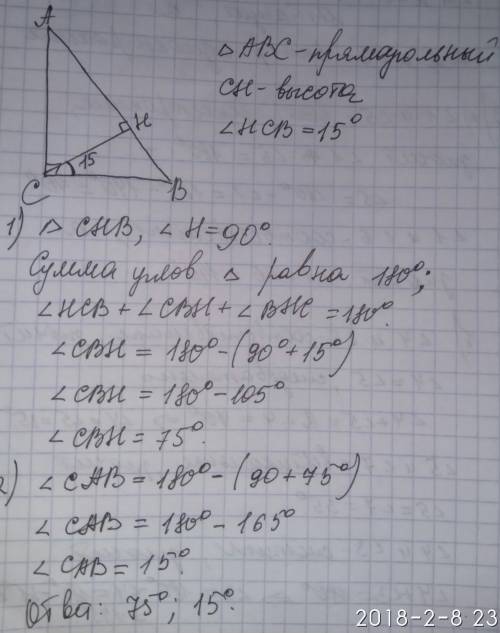 A
△ABC-прямаөольный
CH-высота
∠HCB=15°
H
15
C
B
1) △ CHB, ∠H=90°.
Сумма углов △ равна 180°;
∠HCB+∠CBH+∠BHC=180°
∠CBH=180°-(90°+15°)
∠CBH=180°-105°
∠CBH=75°.
2) ∠CAB=180°-(90+75°)
∠CAB=180°-165°
∠CAB=15°.
Отва: 75°; 15°.
2018-2-8 23